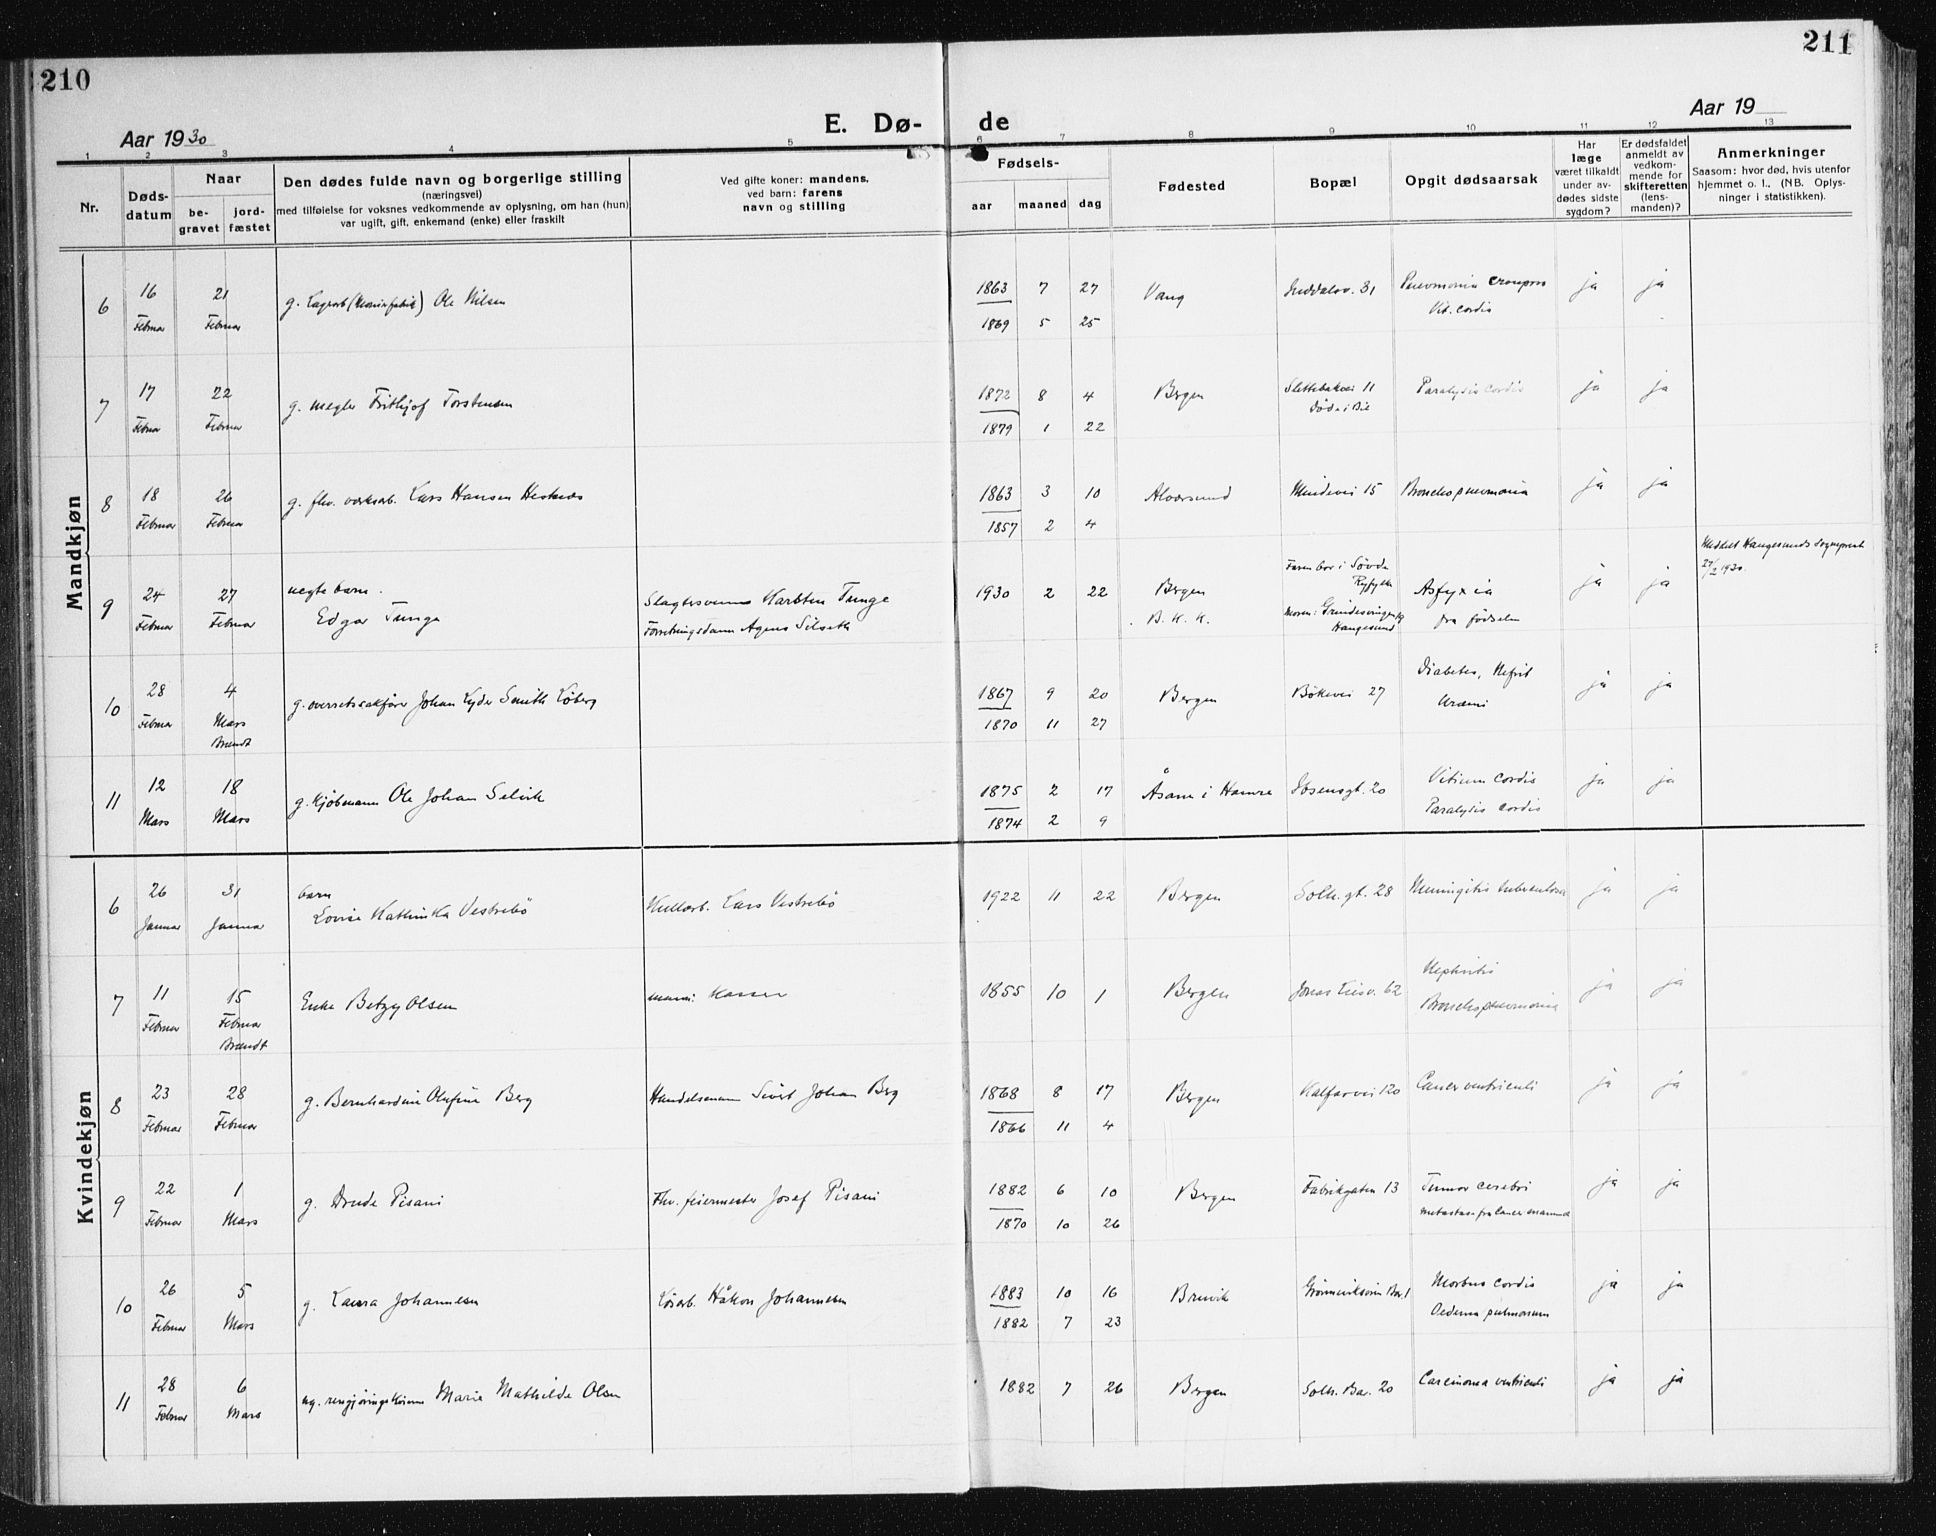 210
211
Aar 1930
E. Dø-
de
Aar 19
1 2 3 4 5 6 7 8 9 10 11 12 13
Nr.
Døds-
datum
Naar
be-
gravet
jord-
fæstet
Den dødes fulde navn og borgerlige stilling
(næringsvei)
med tilføielse for voksnes vedkommende av oplysning, om han (hun)
var ugift, gift, enkemand (enke) eller fraskilt
Ved gifte koner: mandens,
ved barn: farens
navn og stilling
Fødsels-
aar maaned dag
Fødested
Bopæl
Opgit dødsaarsak
Har
læge
været tilkaldt
under av-
dødes sidste
sygdom?
Er dødsfaldet
anmeldt av
vedkom-
mende for
skifteretten
(lens-
manden)?
Anmerkninger
Saasom: hvor død, hvis utenfor
hjemmet o. l., (NB. Oplys-
ninger i statistikken).
Mandkjøn
6 16 21 g. Ole Nilsen 1863 7 27 Vang 31 Pneumonia crouposa ja ja
Februar Februar 1869 5 25 Vit. cordis
7 17 22 g. megler Frithjof Torstensen 1872 8 4 Bergen Slettebakvei 11 Paralysis cordis ja ja
Februar Februar 1879 1 22 Død i Bil
8 18 26 g. fhv. verksarb. Lars Hansen 1863 3 10 Alversund Mindevei 15 Bronchopneumonia ja ja
Februar Februar 1857 2 4
Meddelt Haugesunds Sogneprest
1930.
9 24 27 uegte barn. Slagtersvenn Karsten Tunge 1930 2 22 Bergen Faren bor i Søvde Asfyxia ja ja
Ryfylke
Februar Februar Edgar Tunge Agnes Silseth B. K. K. Moren: fra fødselen
Haugesund
10 28 4 g. overretssakfører Johan Lyder Smith Loberg 1867 9 20 Bergen Bøkevei 27 Diabetes, Nefrit ja ja
Februar Mars 1870 11 27 Uræmi
Brandt
11 12 18 g. kjøbmann Ole Johan Selvik 1875 2 17 Åsane i Hamre Ibsensgt. 20 Vitium cordis ja ja
Mars Mars 1874 2 9 Paralysis cordis
Kvindekjøn
6 26 31 barn Lars Vestrebø 1922 11 22 Bergen Solh. gt. 28 Meningitis tuberculosa ja ja
Januar Januar Lovise Kathinka Vestrebø
7 11 15 Enke Betzy Olsen 1855 10 1 Bergen Jonas Liesv. 62 Nephritis ja ja
Februar Februar Bronchopneumonia
Brandt
8 23 28 g. Bernhardine Olufine Berg Handelsmann Sivert Johan Berg 1868 8 17 Bergen Kalfarvei 120 Cancer ventriculi ja ja
Februar Februar 1866 11 4
9 22 1 g. Drude Pisani Fhv. feiermester Josef Pisani 1882 6 10 Bergen Fabrikgaten 13 Tumor cerebri ja ja
Februar Mars 1870 10 26 metastase fra cancer mamma
10 26 5 g. Laura Johannesen Løsarb. Håkon Johannesen 1883 10 16 Brevik Morbus cordis ja ja
Februar Mars 1882 7 23 Oedema pulmonum
11 28 6 ug. Marie Mathilde Olsen 1882 7 26 Bergen Solh. Bar. 20 Carcinoma ventriculi ja ja
Februar Mars